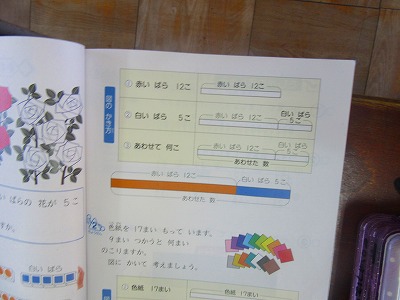 図の かき方
① 赤い ばら 12こ
赤い ばら 12こ
② 白い ばら 5こ
赤い ばら 12こ
白い ばら
5こ
③ あわせて 何こ
赤い ばら 12こ
白い ばら
5こ
あわせた 数
赤い ばら 12こ
白い ばら 5こ
あわせた 数
い ばらの 花が 5こ
すか。
白い ばら
2 色紙を 17まい もって います。
9まい つかうと 何まい
のこりますか。
図に かいて 考えましょう。
① 色紙 17まい
色紙 17まい